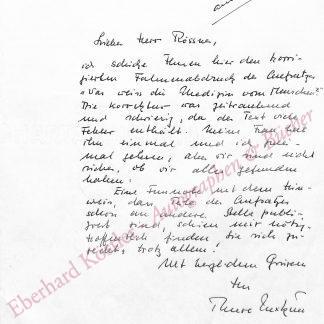 Lieber Herr Rössner,
ich schicke Ihnen hier den korri-
gierten Fahnenabdruck des Aufsatzes
"Was weiss die Medizin vom Menschen?"
Die Korrektur war zeitraubend
und schwierig, da der Text viele
Fehler enthält. Meine Frau hat
ihn einmal und ich zwei-
mal gelesen, aber wir sind nicht
sicher, ob wir alle gefunden
haben!
Eine Fussnote mit dem Hin-
weis, dass Teile des Aufsatzes
schon an anderer Stelle publi-
ziert sind, schien mir nötig.
Hoffentlich finden Sie sich zu-
recht, trotz allem!
Mit herzlichen Grüssen
Ihr
Thure Uexküll
Eberhard Köstler - Autographen & Bücher